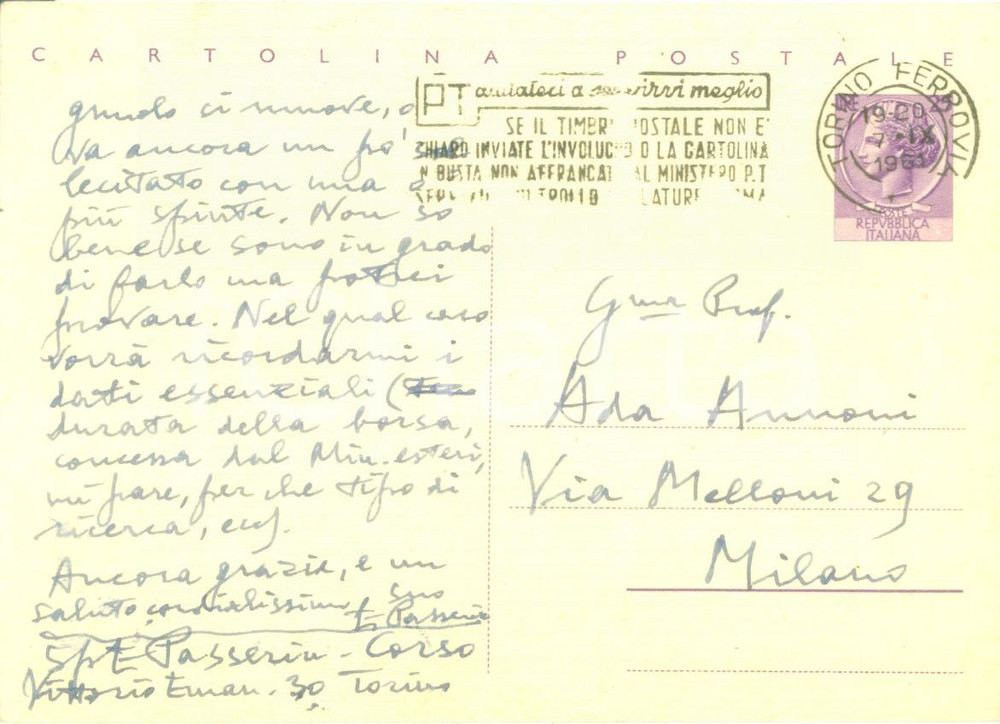 CARTOLINA POSTALE
PT aiutateci a servirvi meglio
SE IL TIMBR OSTALE NON E'
CHIARO INVIATE L'INVOLUC O O LA CARTOLINA
N BUSTA NON AFFRANCAT AL MINISTERO P.T
TORINO FERROVIA
19-20
IX
1963
POSTE
REPVBBLICA
ITALIANA
ci muove,
va ancora un po'
lecitato con una o
più spinte. Non so
bene se sono in grado
di farlo ma potrei
provare. Nel qual caso
vorrà ricordarmi i
dati essenziali (
durata della borsa,
concessa dal Min. esteri,
mi pare, per che tipo di
ricerca, ecc).
Ancora grazie, e un
saluto cordialissimo, suo
E. Passerin
Sp. E. Passerin - Corso
Vittorio Eman. 30 Torino
Gma Prof.
Ada Annoni
Via Melloni 29
Milano